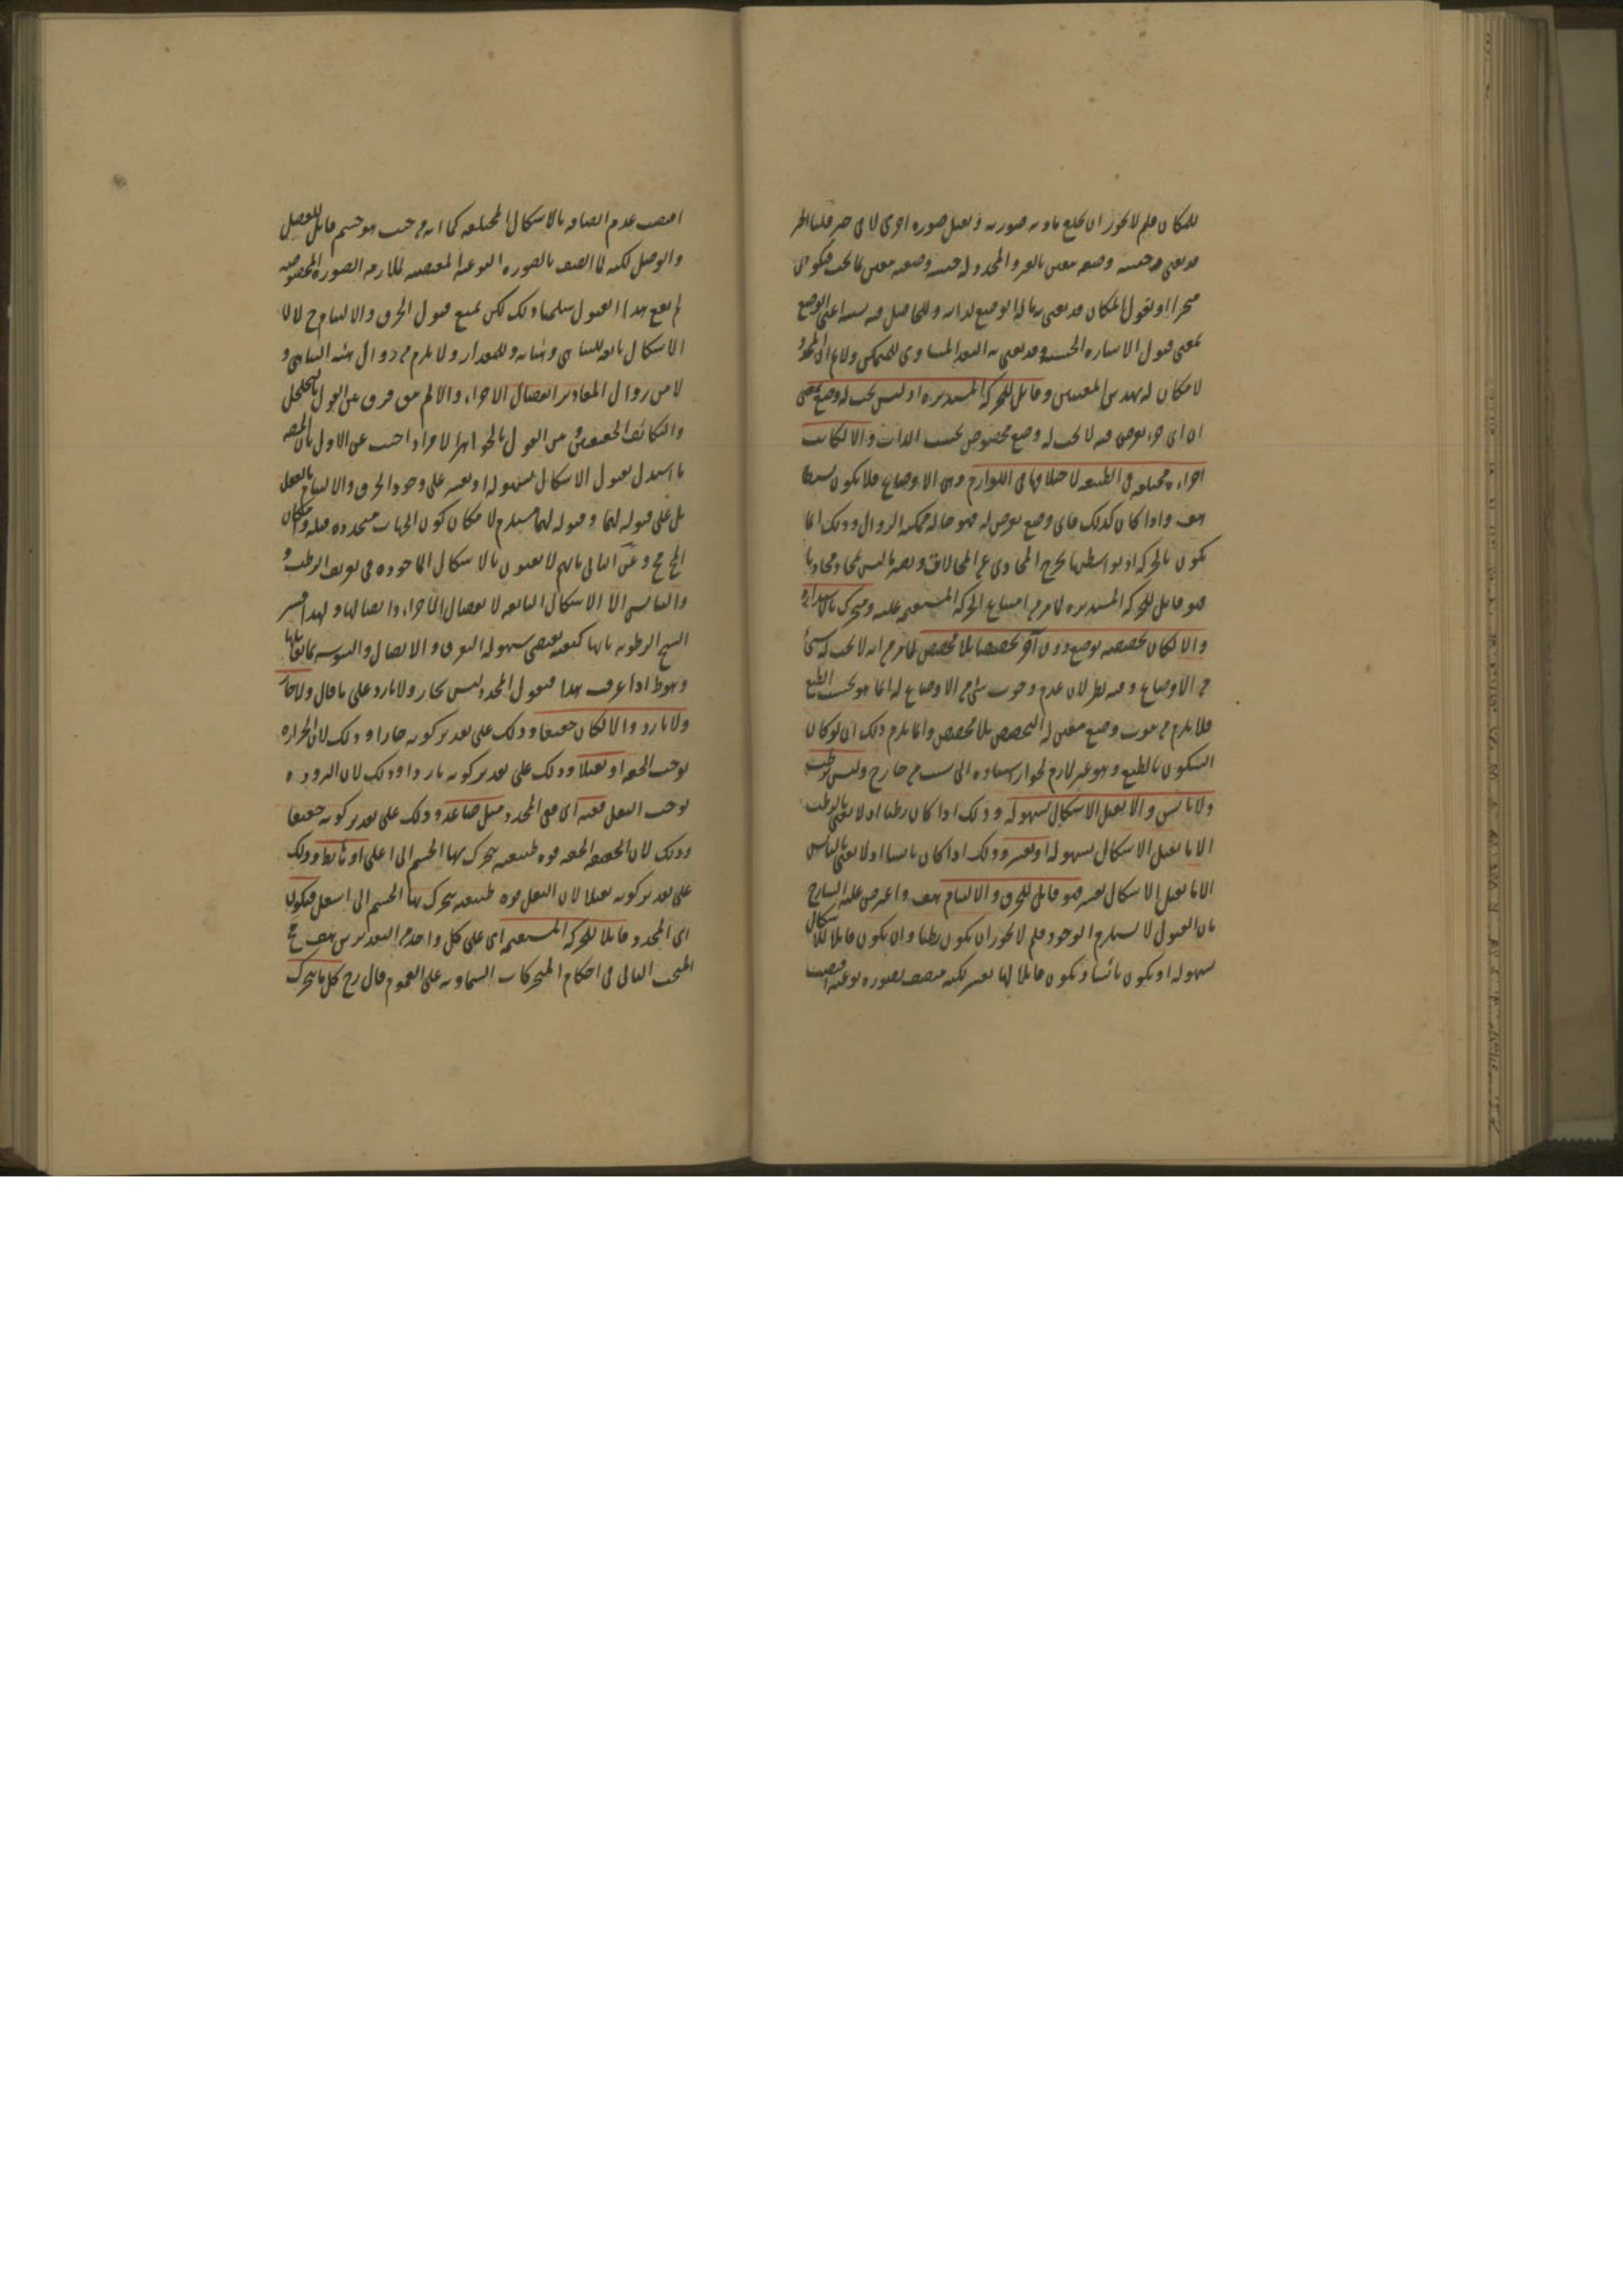 للمكان فلم لا يجوز ان يخلع مادته صورته و تقبل صورة اخرى لا فى حيز قلنا الحيز
قد يعنى به حيثية وضعه معين بالغير و المحدد له حيثية وضعية معين بما تحته فيكون
متحيزا او نقول المكان قد يعنى به ما له الوضع لذاته و للحاصل فيه بسببه اعنى الوضع
بمعنى قبول الاشارة الحسية و قد يعنى به البعد المساوى للمتمكن ولا ان المحدد
لا مكان له بهذين المعنيين و قابل للحركة المستديرة اذ ليس يجب له وضع بمعنى
ان اى جزء يفرض فيه لا يجب له وضع مخصوص بحسب الذات و الا لكانت
اجزاءه مختلفة فى الطبيعة لاختلافها فى اللوازم و هى الاوضاع فلا يكون بسيطا
هف و اذا كان كذلك فاى وضع يفرض له فهو حالة ممكنة الزوال و ذلك انما
يكون بالحركة اذ بواسطتها يخرج المحاذى عن المحاذاة و يصير ما ليس بمحاذ محاذيا
فهو قابل للحركة المستديرة لما مر من امتناع الحركة المستقيمة عليه و متحرك بالاستدارة
و الا لكان تخصصه بوضع دون آخر تخصصا بلا مخصص لما مر من انه لا يجب له شئ
من الاوضاع و فيه نظر لان عدم وجوب شئ من الاوضاع له انما هو بحسب الطبع
فلا يلزم من ثبوت وضع معين له التخصص بلا مخصص و انما يلزم ذلك ان لو كان
السكون بالطبع و هو غير لازم لجواز استناده الى سبب من خارج و ليس برطب
ولا يابس و الا لقبل الاشكال بسهولة و ذلك اذا كان رطبا اذ لا نعنى بالرطب
الا ما يقبل الاشكال بسهولة او بعسر و ذلك اذا كان يابسا اذ لا نعنى باليابس
الا ما يقبل الاشكال بعسر فهو قابل للخرق و الالتيام هف و اعترض عليه الشارح
بان القبول لا يستلزم الوجود فلم لا يجوز ان يكون رطبا و ان يكون قابلا للاشكال
بسهولة او يكون يابسا و يكون قابلا لها بعسر لكنه متصف بصورة نوعية اقتضت
اقتضت عدم اتصافه بالاشكال المختلفة كما انه من حيث هو جسم قابل للفصل
و الوصل لكنه لما اتصف بالصورة النوعية المقتضية لملازمة الصورة المخصوصة
لم يقع هذا القبول سلمنا ذلك لكن نمنع قبول الخرق و الالتيام ح لان
الاشكال تابعة للتناهى و للمقدار ولا يلزم من زوال التناهى و
لا من زوال المقادير انفصال الاجزاء و الا لم يبق فرق بين القول بالتخلخل
و التكاثف الحقيقيين و بين القول بالجواهر الافراد اجيب عن الاول بان المصنف
ما استدل بقبول الاشكال بسهولة او بعسر على وجود الخرق و الالتيام بالفعل
بل على قبوله لهما و قبوله لهما مستلزم لامكان كون الجهات متحددة قبله و امكان
المح مح و عن الثانى بانهم لا يعنون بالاشكال الماخوذة فى تعريف الرطب و
اليابس الا الاشكال التابعة لانفصال الاجزاء و اتصالها و لهذا فسر
الشيخ الرطوبة بانها كيفية تقتضى سهولة التفرق و الاتصال و اليبوسة بما يقابلها
و هو ظ اذا عرفت هذا فنقول المحدد ليس بحار ولا بارد على ما قال ولا حار
ولا بارد و الا لكان خفيفا و ذلك على تقدير كونه حارا و ذلك لان الحرارة
توجب الخفة او ثقيلا و ذلك على تقدير كونه باردا و ذلك لان البرودة
توجب الثقل ففيه اى فى المحدد ميل صاعد و ذلك على تقدير كونه خفيفا
و ذلك لان الخفة قوة طبيعية يتحرك بها الجسم الى اعلى او هابط و ذلك
على تقدير كونه ثقيلا لان الثقل قوة طبيعية يتحرك بها الجسم الى اسفل فيكون
اى المحدد قابلا للحركة المستقيمة اى على كل واحد من التقديرين هف مح
المبحث الثانى فى احكام المتحركات السماوية على العموم قال رح كل ما يتحرك